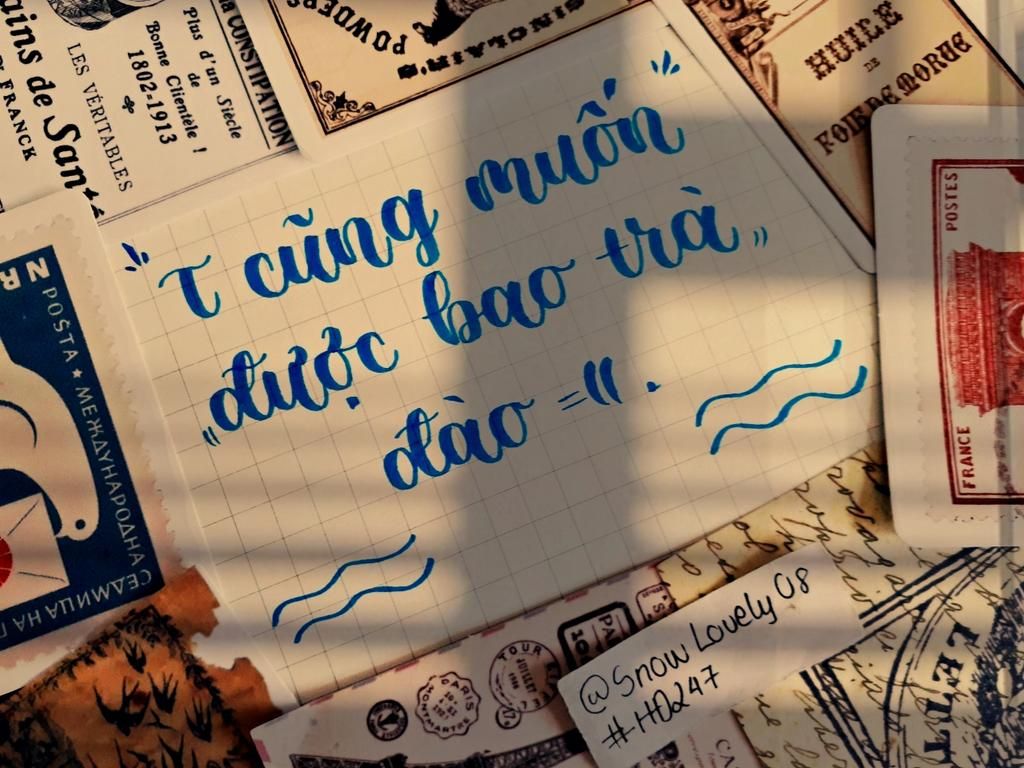 la CONSTIPATION
Plus d'un Siècle
Bonne Clientèle !
1802-1913
LES VÉRITABLES
ains de San
FRANCK
SINCLAIR'S
POWDERS
HUILE
DE
FOIE DE MORUE
" τ cũng muốn "
" được bao trà "
đào =)) .
POSTA ★ МЕЖДУНАРОДНА
СЕДМИЦА НА П
POSTES
FRANCE
PARIS
@Snow Lovely 08
#HD247